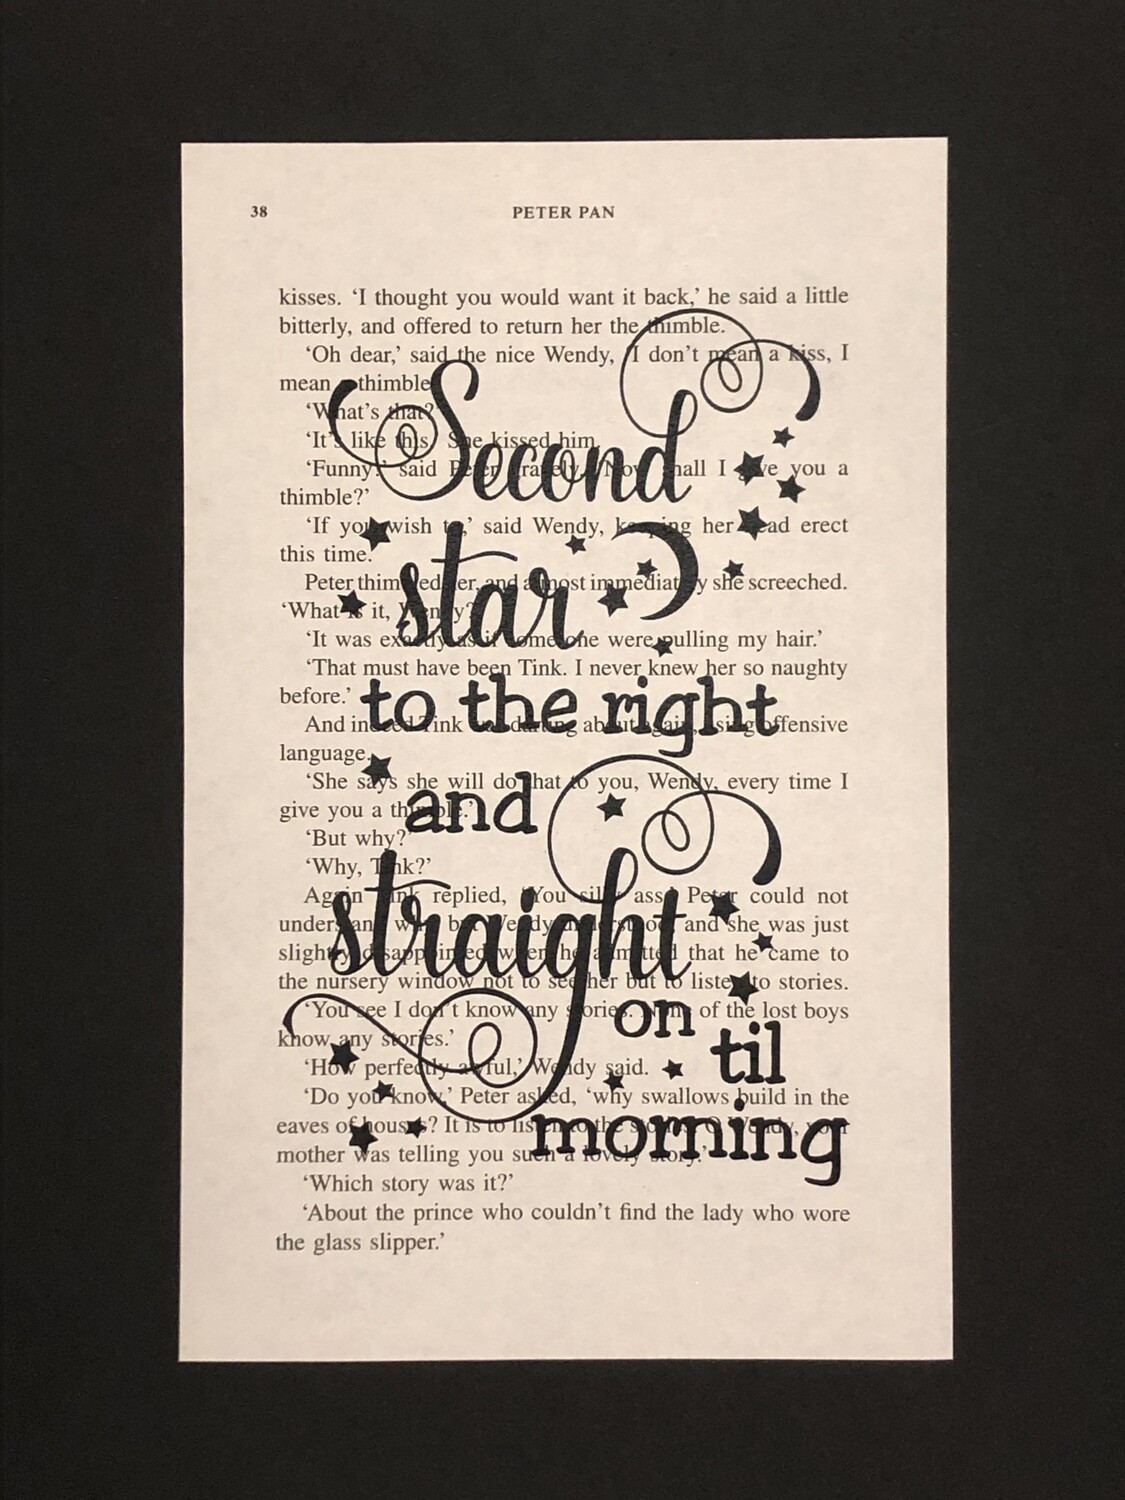 38 PETER PAN
kisses. ‘I thought you would want it back,’ he said a little
bitterly, and offered to return her the thimble.
‘Oh dear,’ said the nice Wendy, ‘I don’t mean a kiss, I
mean a thimble.’
‘What’s that?’
‘It’s like this.’ She kissed him.
‘Funny!’ said Peter gravely. ‘Now shall I give you a
thimble?’
‘If you wish to,’ said Wendy, keeping her head erect
this time.
Peter thimbled her, and almost immediately she screeched.
‘What is it, Wendy?’
‘It was exactly as if someone were pulling my hair.’
‘That must have been Tink. I never knew her so naughty
before.’
And indeed Tink was darting about again, using offensive
language.
‘She says she will do that to you, Wendy, every time I
give you a thimble.’
‘But why?’
‘Why, Tink?’
Again Tink replied, ‘You silly ass.’ Peter could not
understand why, but Wendy understood, and she was just
slightly disappointed when he admitted that he came to
the nursery window not to see her but to listen to stories.
‘You see I don’t know any stories. None of the lost boys
know any stories.’
‘How perfectly awful,’ Wendy said.
‘Do you know,’ Peter asked, ‘why swallows build in the
eaves of houses? It is to listen to the stories. O Wendy, your
mother was telling you such a lovely story.’
‘Which story was it?’
‘About the prince who couldn’t find the lady who wore
the glass slipper.’
Second
star
to the right
and
straight
on
til
morning